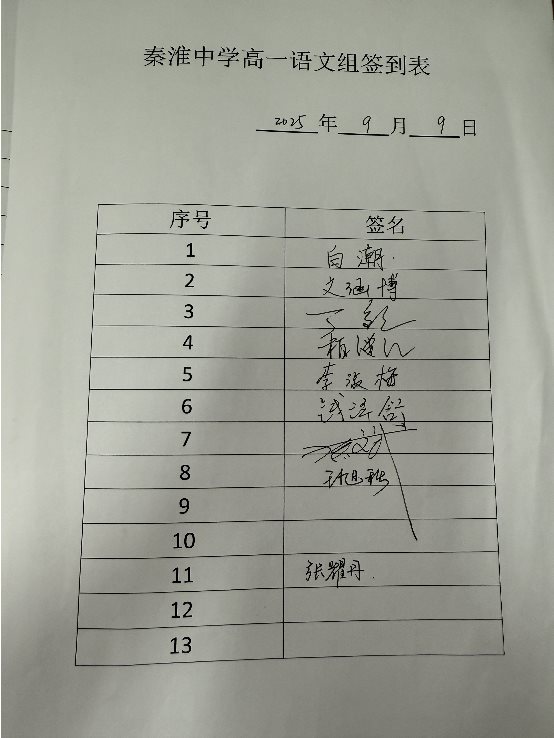 秦淮中学高一语文组签到表
2025 年 9 月 9 日
序号 签名
1 白潮
2 文涵博
3 丁
4
5 李淑梅
6 钱清舒
7
8 王旭秋
9
10
11 张耀丹
12
13